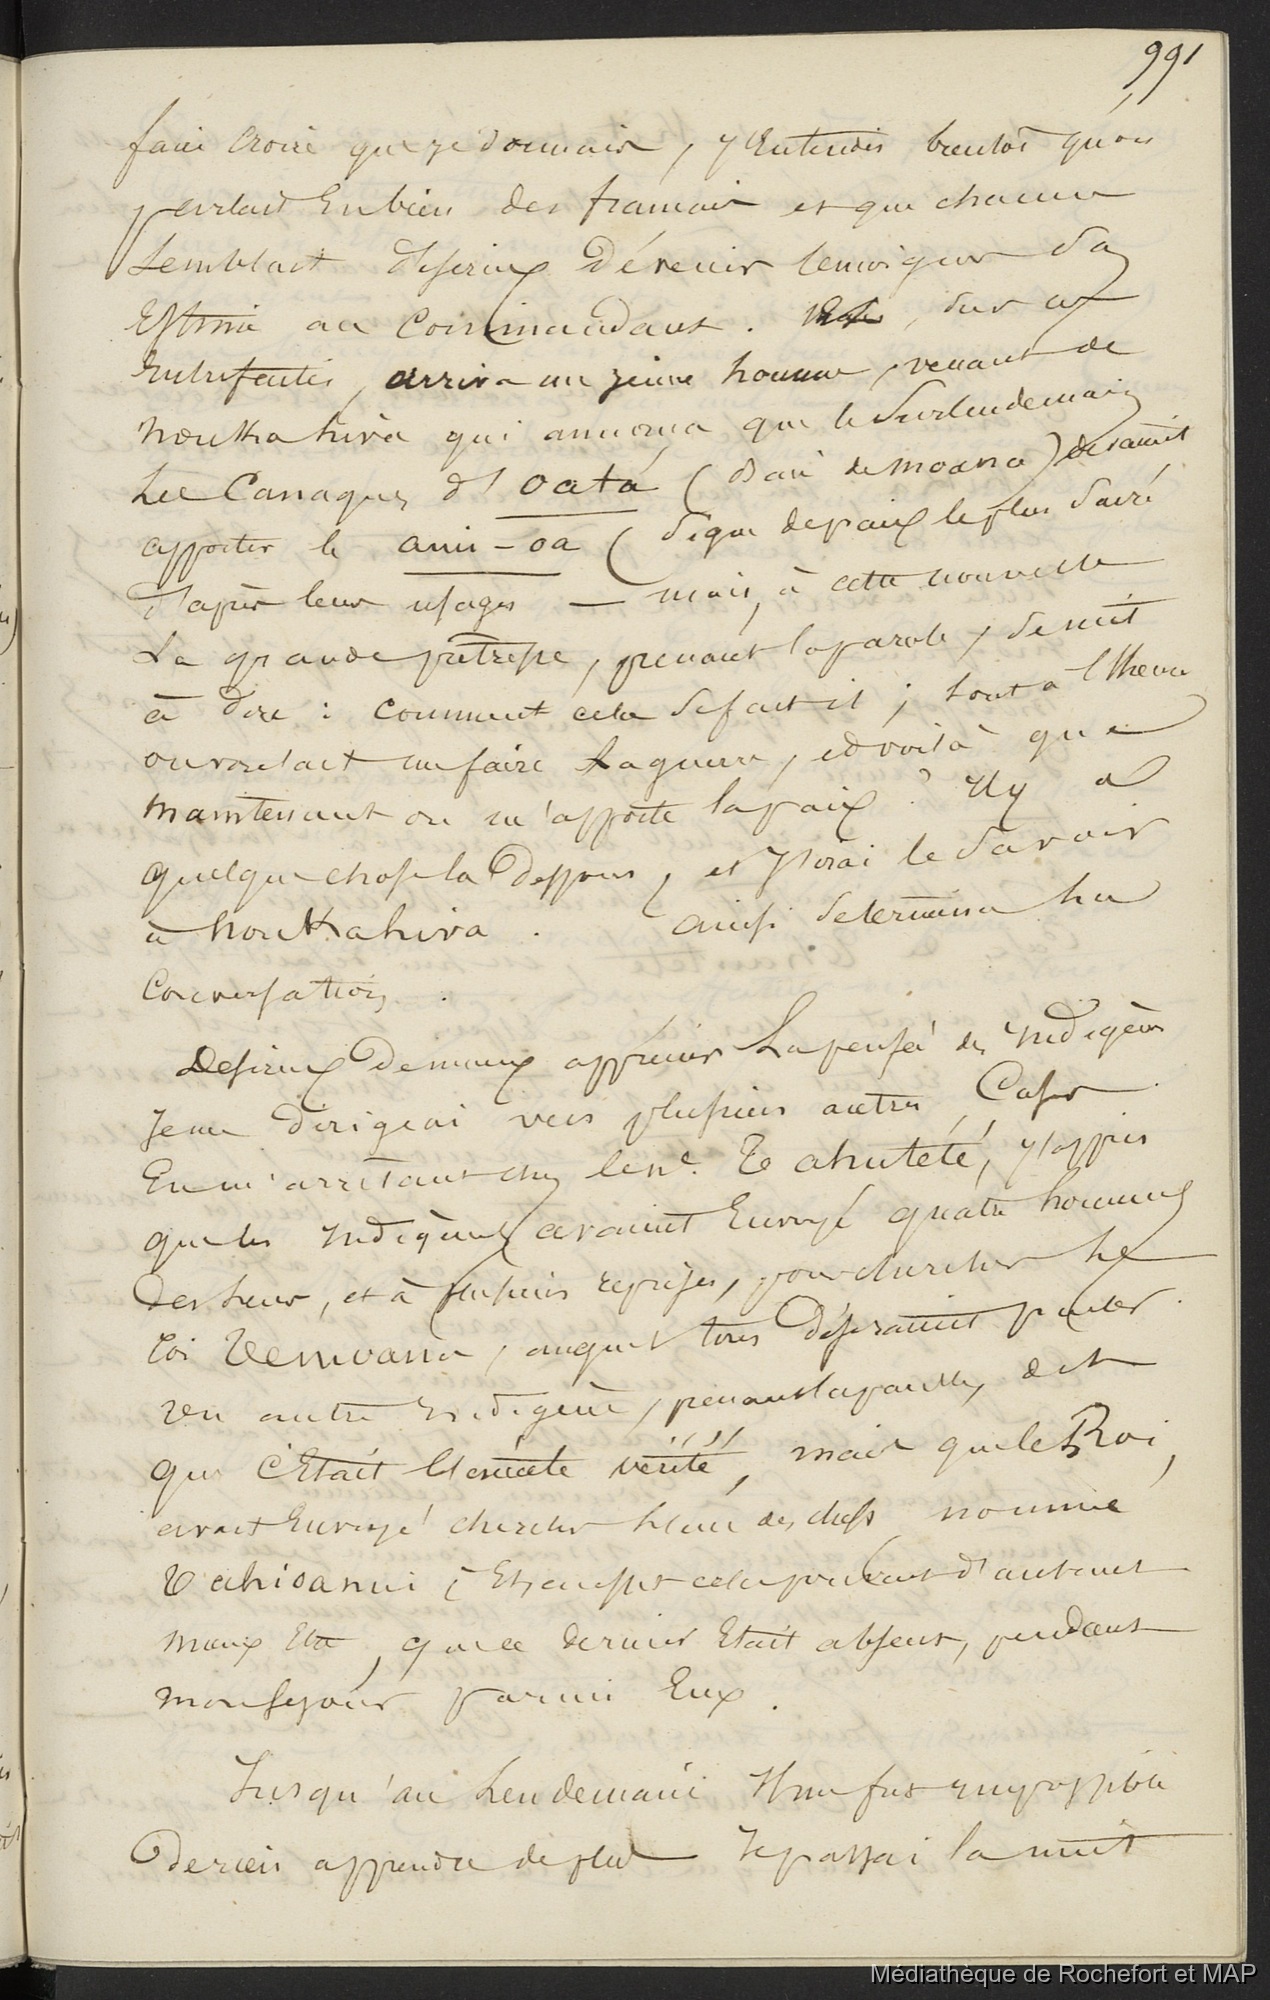 991
faire croire que je dormais, j'entendis bientôt qu'on
parlait En bien des francais et que chacun
Semblait desireux Dévenir temoigner Sa
Estime au Commandant. , Sur ces
Entrefaites, arriva un jeune homme, venant de
Noukahiva qui annonça que le Surlendemain
Les Canaques d'Oata (Baie de Moana) devaient
apporter le ami-oa (Signe de paix le plus Sacré
D'après leurs usages — mais, à cette nouvelle
La grande prêtresse, prenant la parole, Se mit
à Dire : comment cela Se fait il ; tout a l'heure
on voulait me faire La guerre, et voilà que
maintenant on m'apporte la paix ? Il y a
quelque chose la Dessous, et J'irai le Savoir
à Noukahiva. ainsi Se termina La
Conversation.
Desireux De mieux apprécier La pensée des Indigènes
Je me Dirigeai vers plusieurs autres Cases
En m'arrêtant chez le né. Té ahutété, J'appris
que les Indigènes avaient Envoyé quatre hommes
Des leurs, et à plusieurs reprises, pour chercher Le
Roi Temoana, auquel tous Désiraient parler.
Un autre Indigène, prenant la parole, dit
que c'Etait l'exacte vérité, mais que le Roi,
avait Envoyé chercher L'un des chefs nommé
Tahioanui ; Et, en effet cela pouvait d'autant
mieux Etre, que ce dernier Etait absent, pendant
mon Sejour parmi Eux.
Jusqu'au Lendemain Il me fut impossible
De rien apprendre de plus Je passai la nuit
Médiathèque de Rochefort et MAP